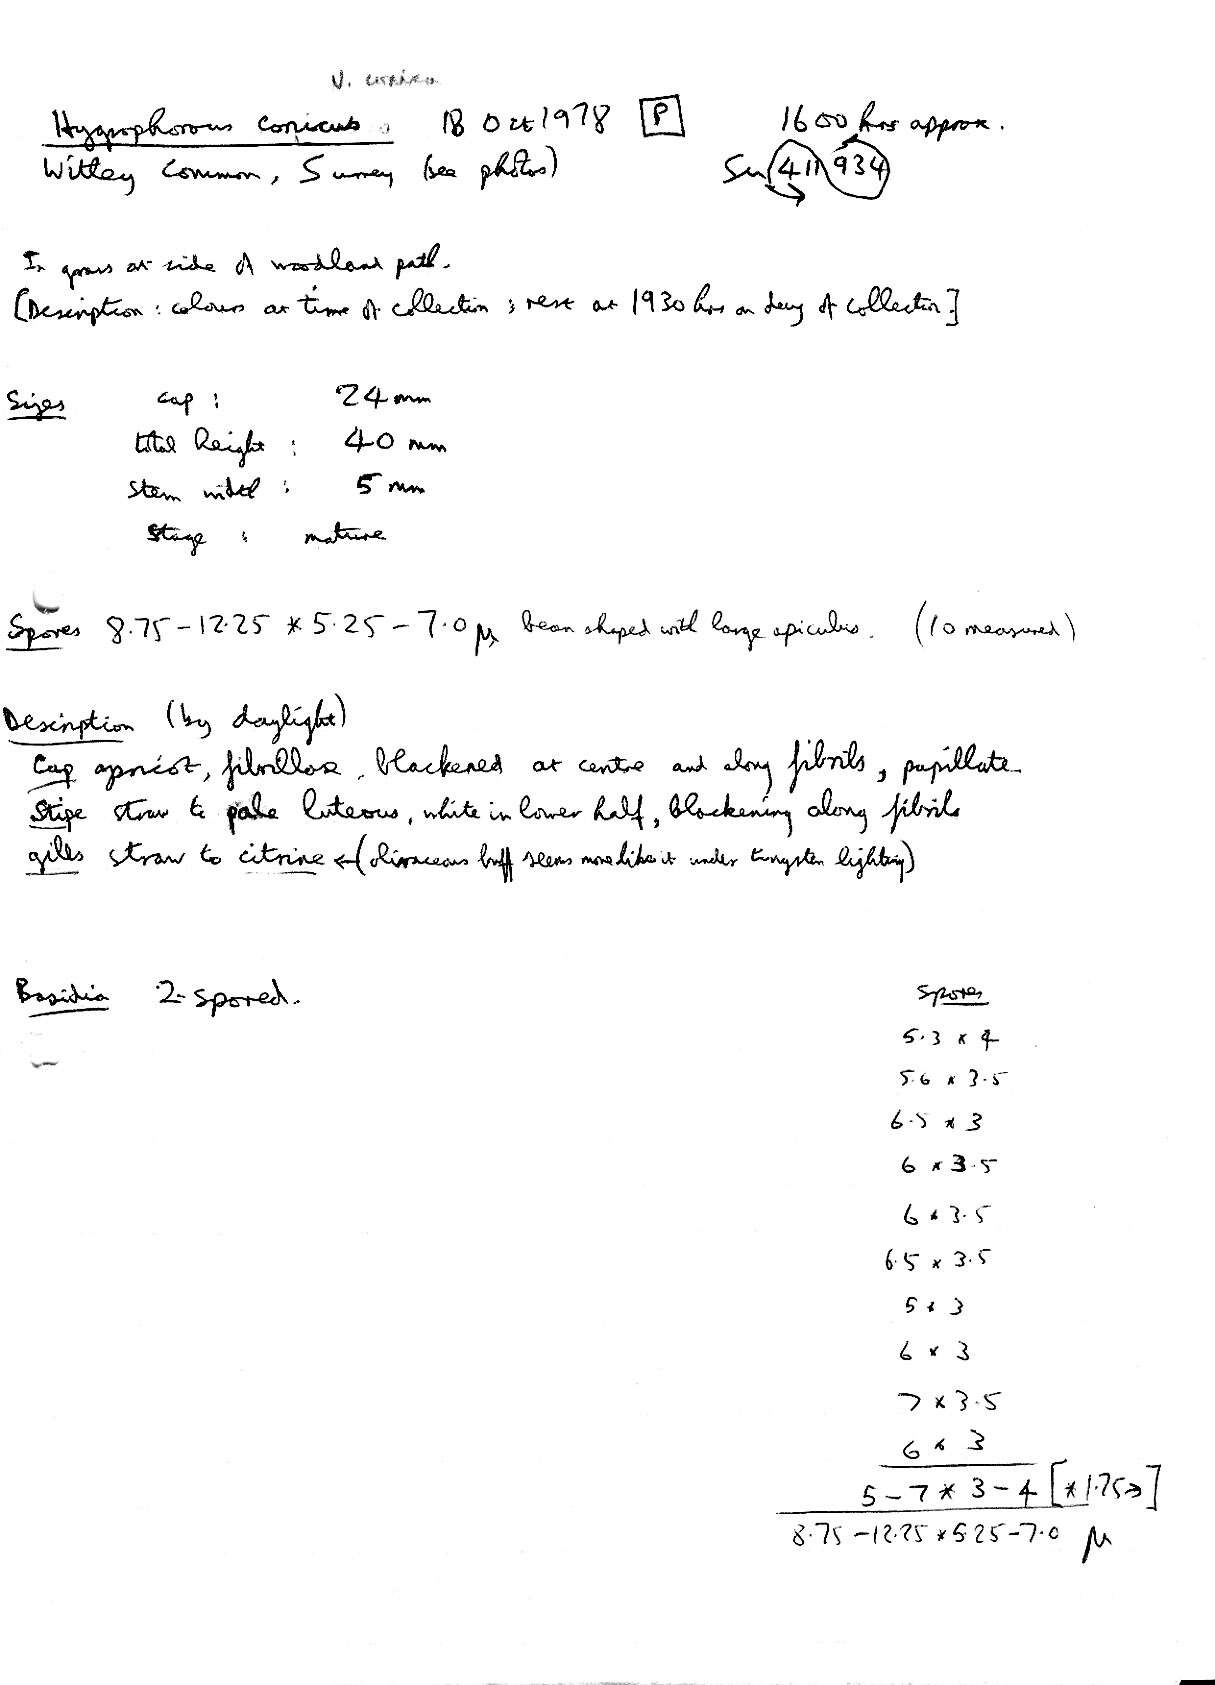 V. conica
Hygrophorous conicus. 18 Oct 1978 [P] 1600 hrs approx.
Witley Common, Surrey (see photos) Su 411 934
In grass at side of woodland path.
[Description: colours at time of collection; rest at 1930 hrs on day of collection]
Sizes cap: 24 mm
total height: 40 mm
stem width: 5 mm
stage: mature
Spores 8.75-12.25 * 5.25-7.0 μ bean shaped with large apiculus. (10 measured)
Description (by daylight)
Cap apricot, fibrillose, blackened at centre and along fibrils, papillate
Stipe straw to pale luteous, white in lower half, blackening along fibrils
gills straw to citrine ← (olivaceous buff seems more like it under tungsten lighting)
Basidia 2-spored.
Spores
5.3 * 4
5.6 * 3.5
6.5 * 3
6 * 3.5
6 * 3.5
6.5 * 3.5
5 * 3
6 * 3
7 * 3.5
6 * 3
5-7 * 3-4 [* 1.75→]
8.75-12.25 * 5.25-7.0 μ